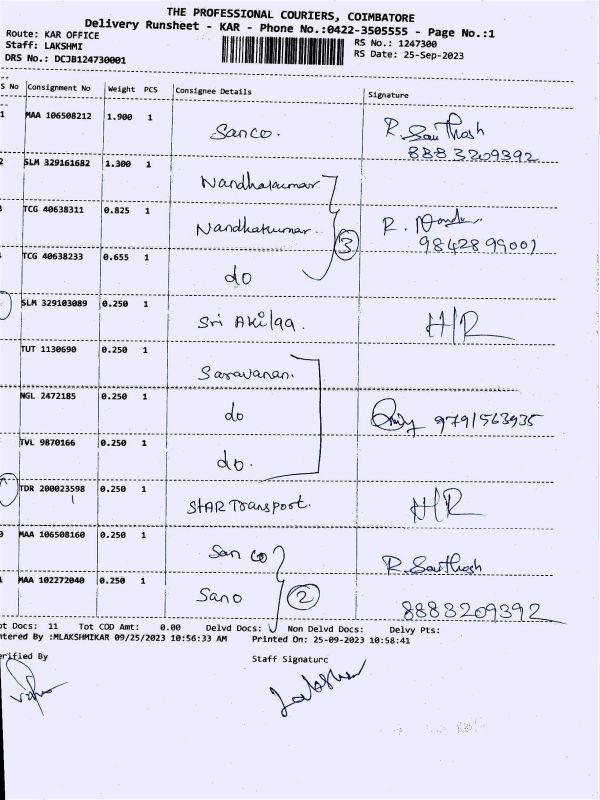 THE PROFESSIONAL COURIERS, COIMBATORE
Delivery Runsheet - KAR - Phone No.:0422-3505555 - Page No.:1
Route: KAR OFFICE
RS No.: 1247300
Staff: LAKSHMI
RS Date: 25-Sep-2023
DRS No.: DCJB124730001
S No Consignment No Weight PCS Consignee Details Signature
1 MAA 106508212 1.900 1 Sanco. R. Santhosh
8883209392
2 SLM 329161682 1.300 1 Nandhakumar
TCG 40638311 0.825 1 Nandhakumar. 3 R. Nandu
9842899001
TCG 40638233 0.655 1 do
SLM 329103089 0.250 1 Sri Akilaa. H/R
TUT 1130690 0.250 1 Saravanan.
NGL 2472185 0.250 1 do 9791563935
TVL 9870166 0.250 1 do.
TDR 200023598 0.250 1 STAR Transport. H/R
0 MAA 106508160 0.250 1 San co R. Santhosh
MAA 102272040 0.250 1 Sano 2 8883209392
ot Docs: 11 Tot COD Amt: 0.00 Delvd Docs: Non Delvd Docs: Delvy Pts:
ntered By :MLAKSHMIKAR 09/25/2023 10:56:33 AM Printed On: 25-09-2023 10:58:41
erified By Staff Signature